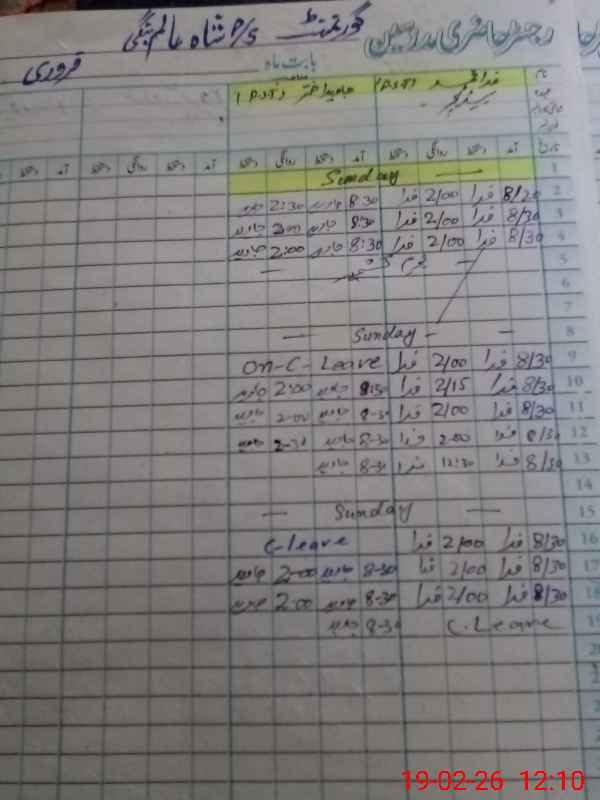 رجسٹر حاضری مدرسین
گورنمنٹ P/S شاہ عالم
فروری
بابت ماہ
(PST) (PST)
تاریخ آمد دستخط روانگی دستخط آمد دستخط روانگی دستخط آمد دستخط روانگی دستخط آمد
1 Sunday
2 8/20 فدا 2/00 فدا 8:30 جاوید 2:30 جاوید
3 8/30 فدا 2/00 فدا 8:30 جاوید 2:00 جاوید
4 8/30 فدا 2/00 فدا 8:30 جاوید 2:00 جاوید
5
6
7
8 Sunday
9 8/30 فدا 2/00 فدا On-C-Leave
10 8/30 فدا 2/15 فدا 8:30 جاوید 2:00 جاوید
11 8/30 فدا 2/00 فدا 8-30 جاوید 2-00 جاوید
12 8/30 فدا 2-00 فدا 8-30 جاوید 2-30 جاوید
13 8/30 فدا 12:30 فدا 8-30 جاوید
14
15 Sunday
16 8/30 فدا 2/00 فدا C-leave
17 8/30 فدا 2/00 فدا 8-30 جاوید 2-00 جاوید
18 8/30 فدا 2/00 فدا 8-30 جاوید 2-00 جاوید
19 C.Leave 8-30 جاوید
20
19-02-26 12:10